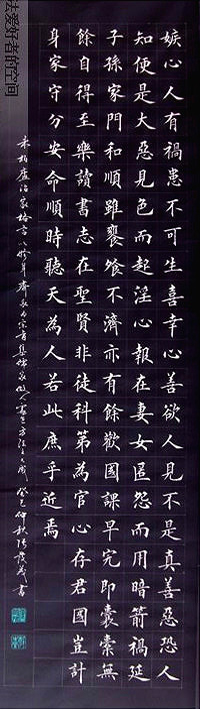 嫉心人有禍患不可生喜幸心善欲人見不是真善惡恐人
知便是大惡見色而起淫心報在妻女匿怨而用暗箭禍延
子孫家門和順雖饔飧不濟亦有餘歡國課早完即囊橐無
餘自得至樂讀書志在聖賢非徒科第為官心存君國豈計
身家守分安命順時聽天為人若此庶乎近焉
朱柏廬治家格言 癸巳仲秋 書
爱好者的空间